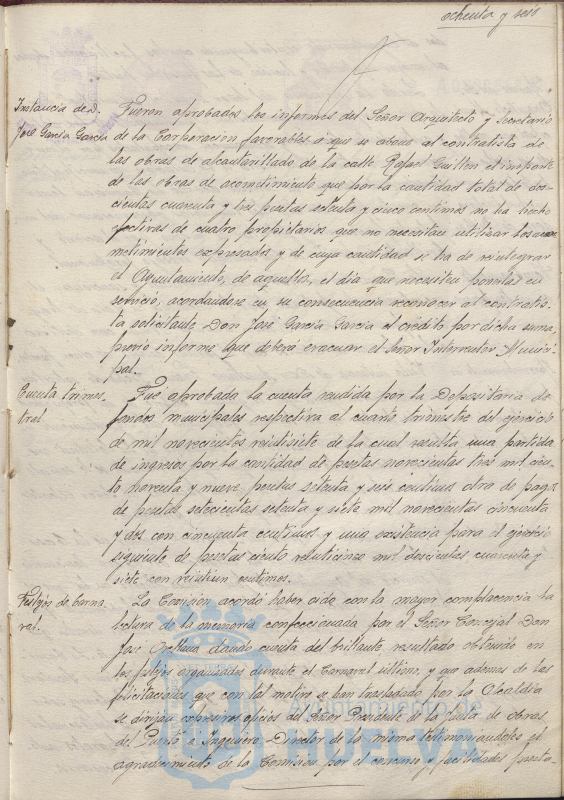 ochenta y seis
Instancia de D.
José García García
Fueron aprobados los informes del Señor Arquitecto y Secretario
de la Corporación favorables a que se abone al contratista de
las obras de alcantarillado de la calle Rafael Guillen el importe
de las obras de acometimiento que por la cantidad total de dos-
cientas cuarenta y tres pesetas setenta y cinco centimos no ha hecho
efectivas de cuatro propietarios que no necesitan utilizar los aco-
metimientos expresados y de cuya cantidad se ha de reintegrar
el Ayuntamiento, de aquellos, el dia que necesiten ponerlas en
servicio, acordandose en su consecuencia reconocer al contratis-
ta solicitante Don José García García el crédito por dicha suma,
previo informe que deberá evacuar el Señor Interventor Munici-
pal.
Cuenta trimes-
tral
Fue aprobada la cuenta rendida por la Depositaria de
fondos municipales respectiva al cuarto trimestre del ejercicio
de mil novecientos veintisiete de la cual resulta una partida
de ingresos por la cantidad de pesetas novecientas tres mil cien-
to noventa y nueve pesetas setenta y seis centimos otra de pagos
de pesetas setecientas setenta y siete mil novecientas cincuenta
y dos con cincuenta centimos y una existencia para el ejercicio
siguiente de pesetas ciento veinticinco mil doscientas cuarenta y
siete con veintiun centimos.
Festejos de carna-
val.
La Comisión acordó haber oido con la mayor complacencia la
lectura de la memoria confeccionada por el Señor Concejal Don
José Orellana dando cuenta del brillante resultado obtenido en
los festejos organizados durante el Carnaval último, y que ademas de las
felicitaciones que con tal motivo se han trasladado por la Alcaldía
se dirijan expresivos oficios al Señor Presidente de la Junta de obras
del Puerto e Ingeniero-Director de la misma testimoniandoles el
agradecimiento de la Comisión por el concurso y facilidades presta-
Ayuntamiento de
HUELVA